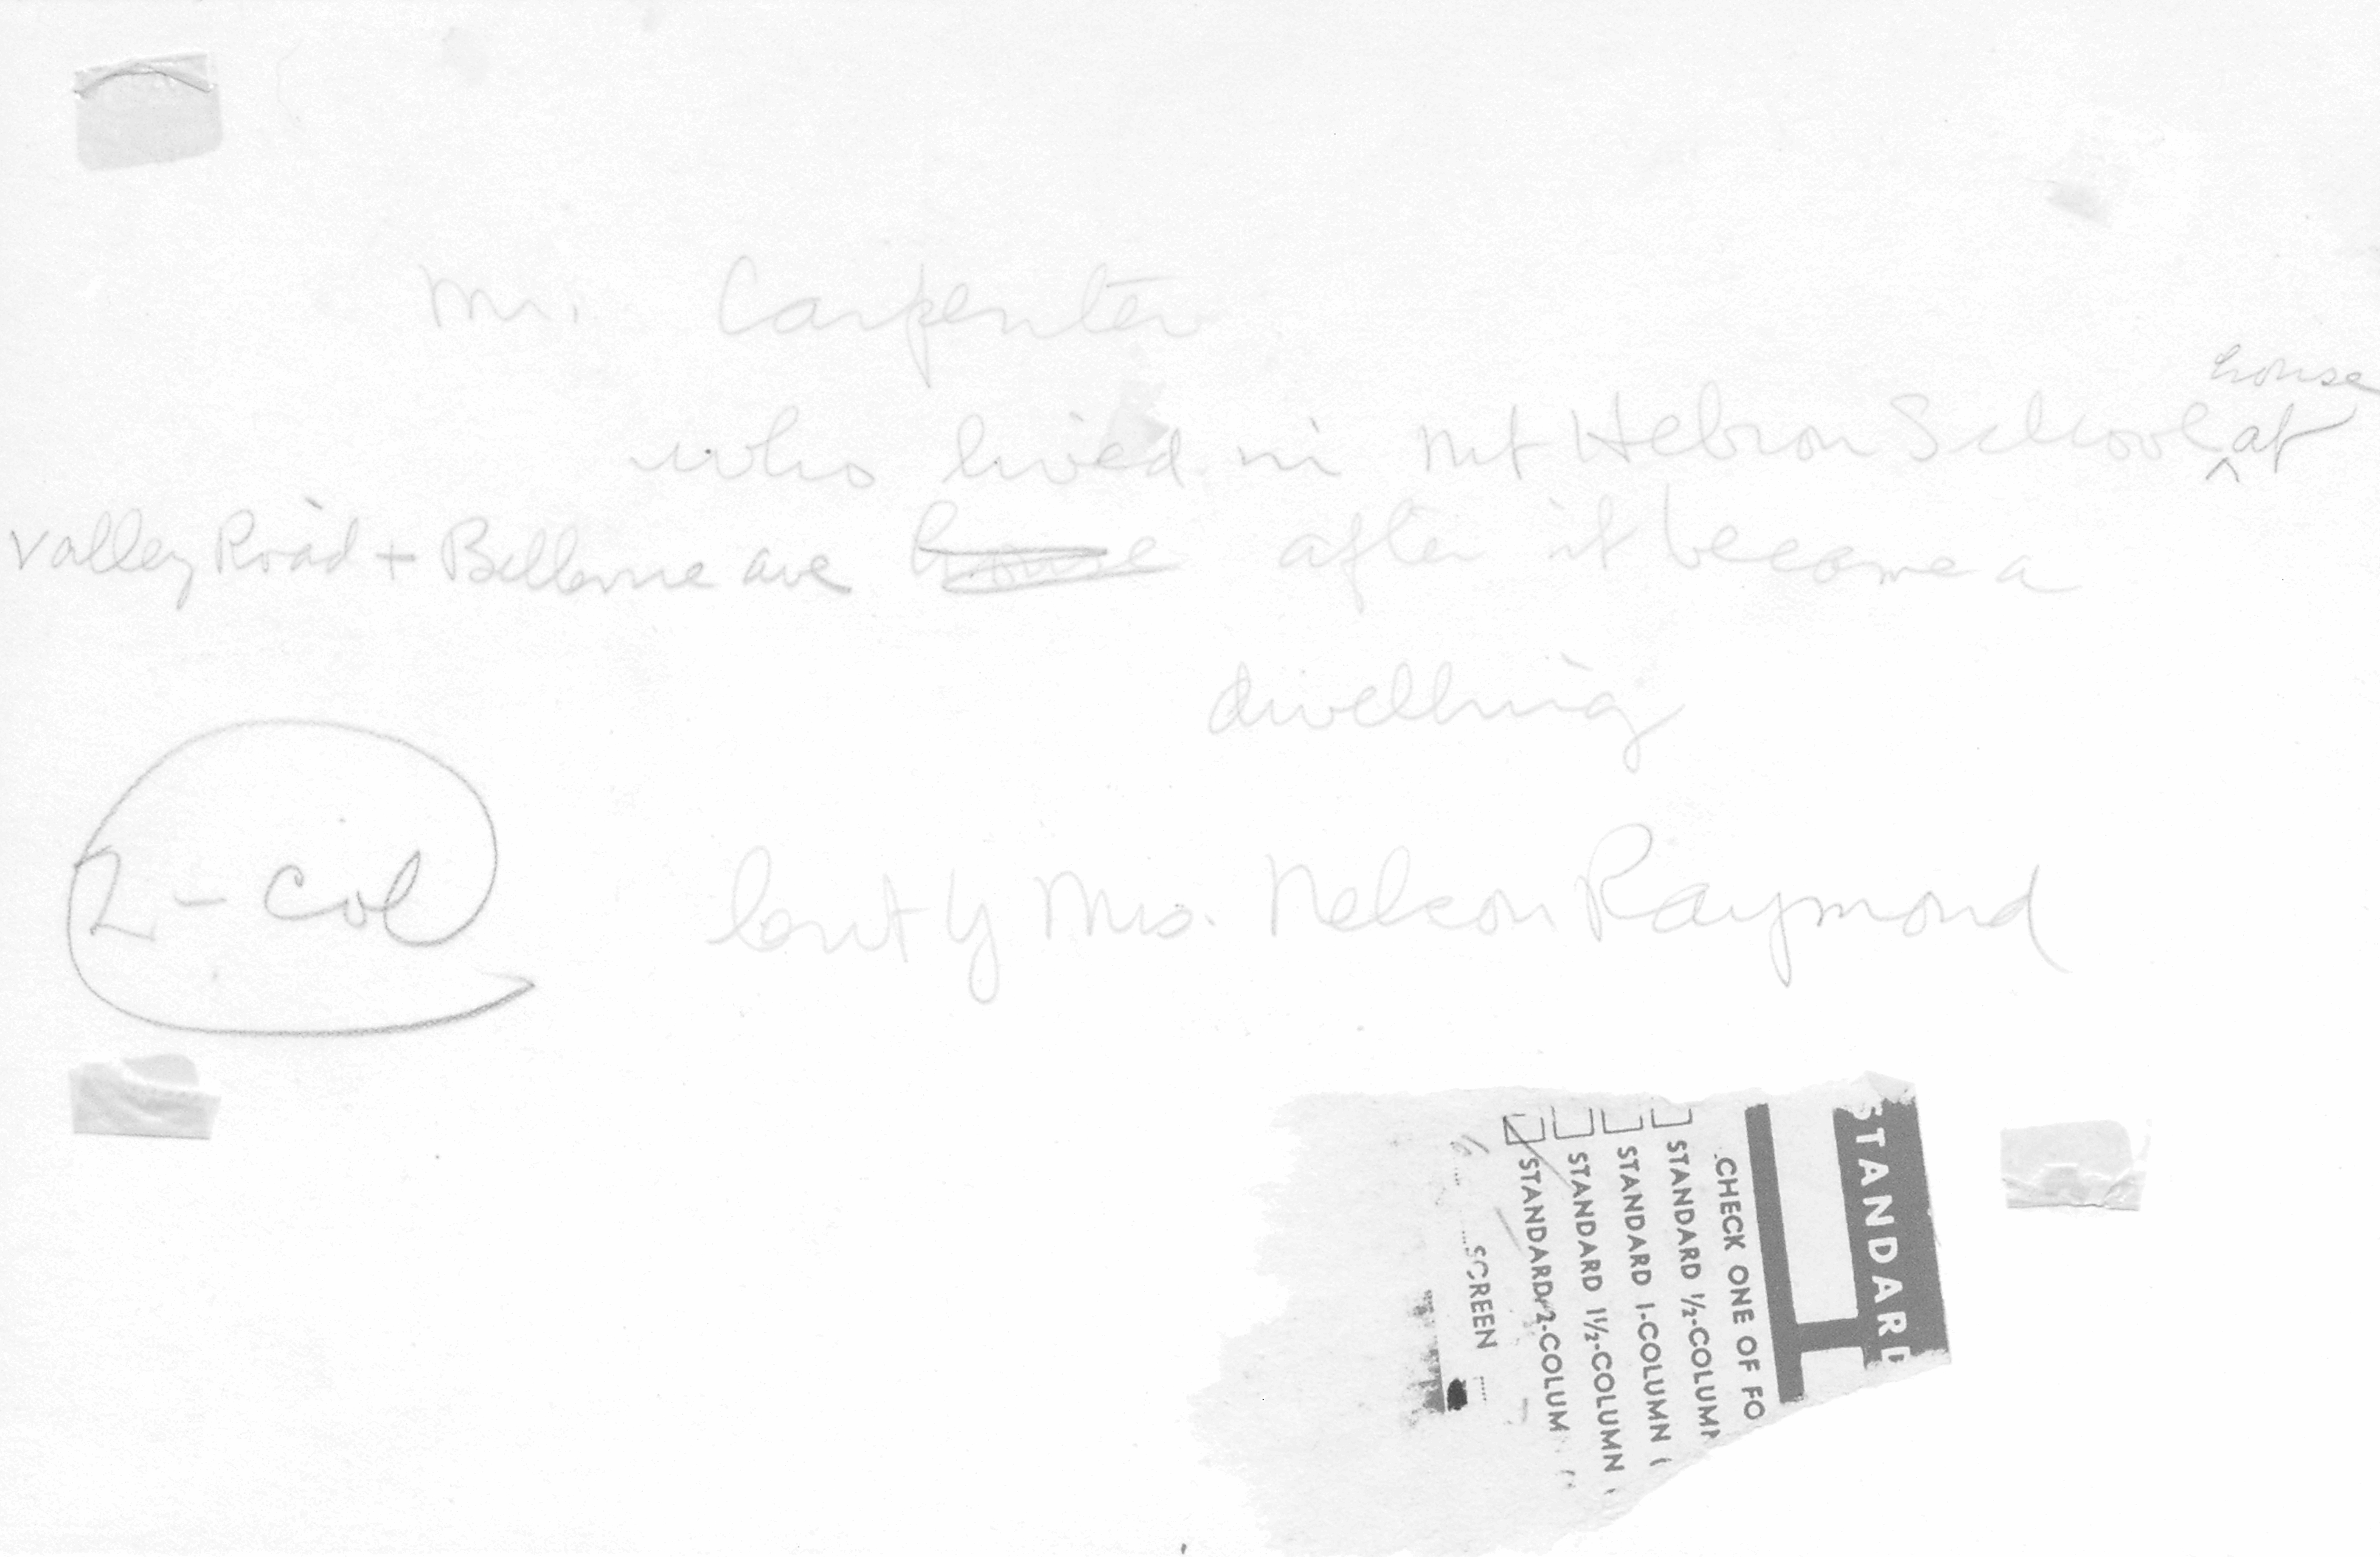 Mr. Carpenter
house
who lived in Mt Hebron School ^ at
Valley Road + Bellevue ave house after it become a
dwelling
2 - col
lent by Mrs. Nelson Raymond
STANDARD
CHECK ONE OF FO
STANDARD ½-COLUMN
STANDARD 1-COLUMN (
STANDARD 1½-COLUMN (
STANDARD 2-COLUM
SCREEN